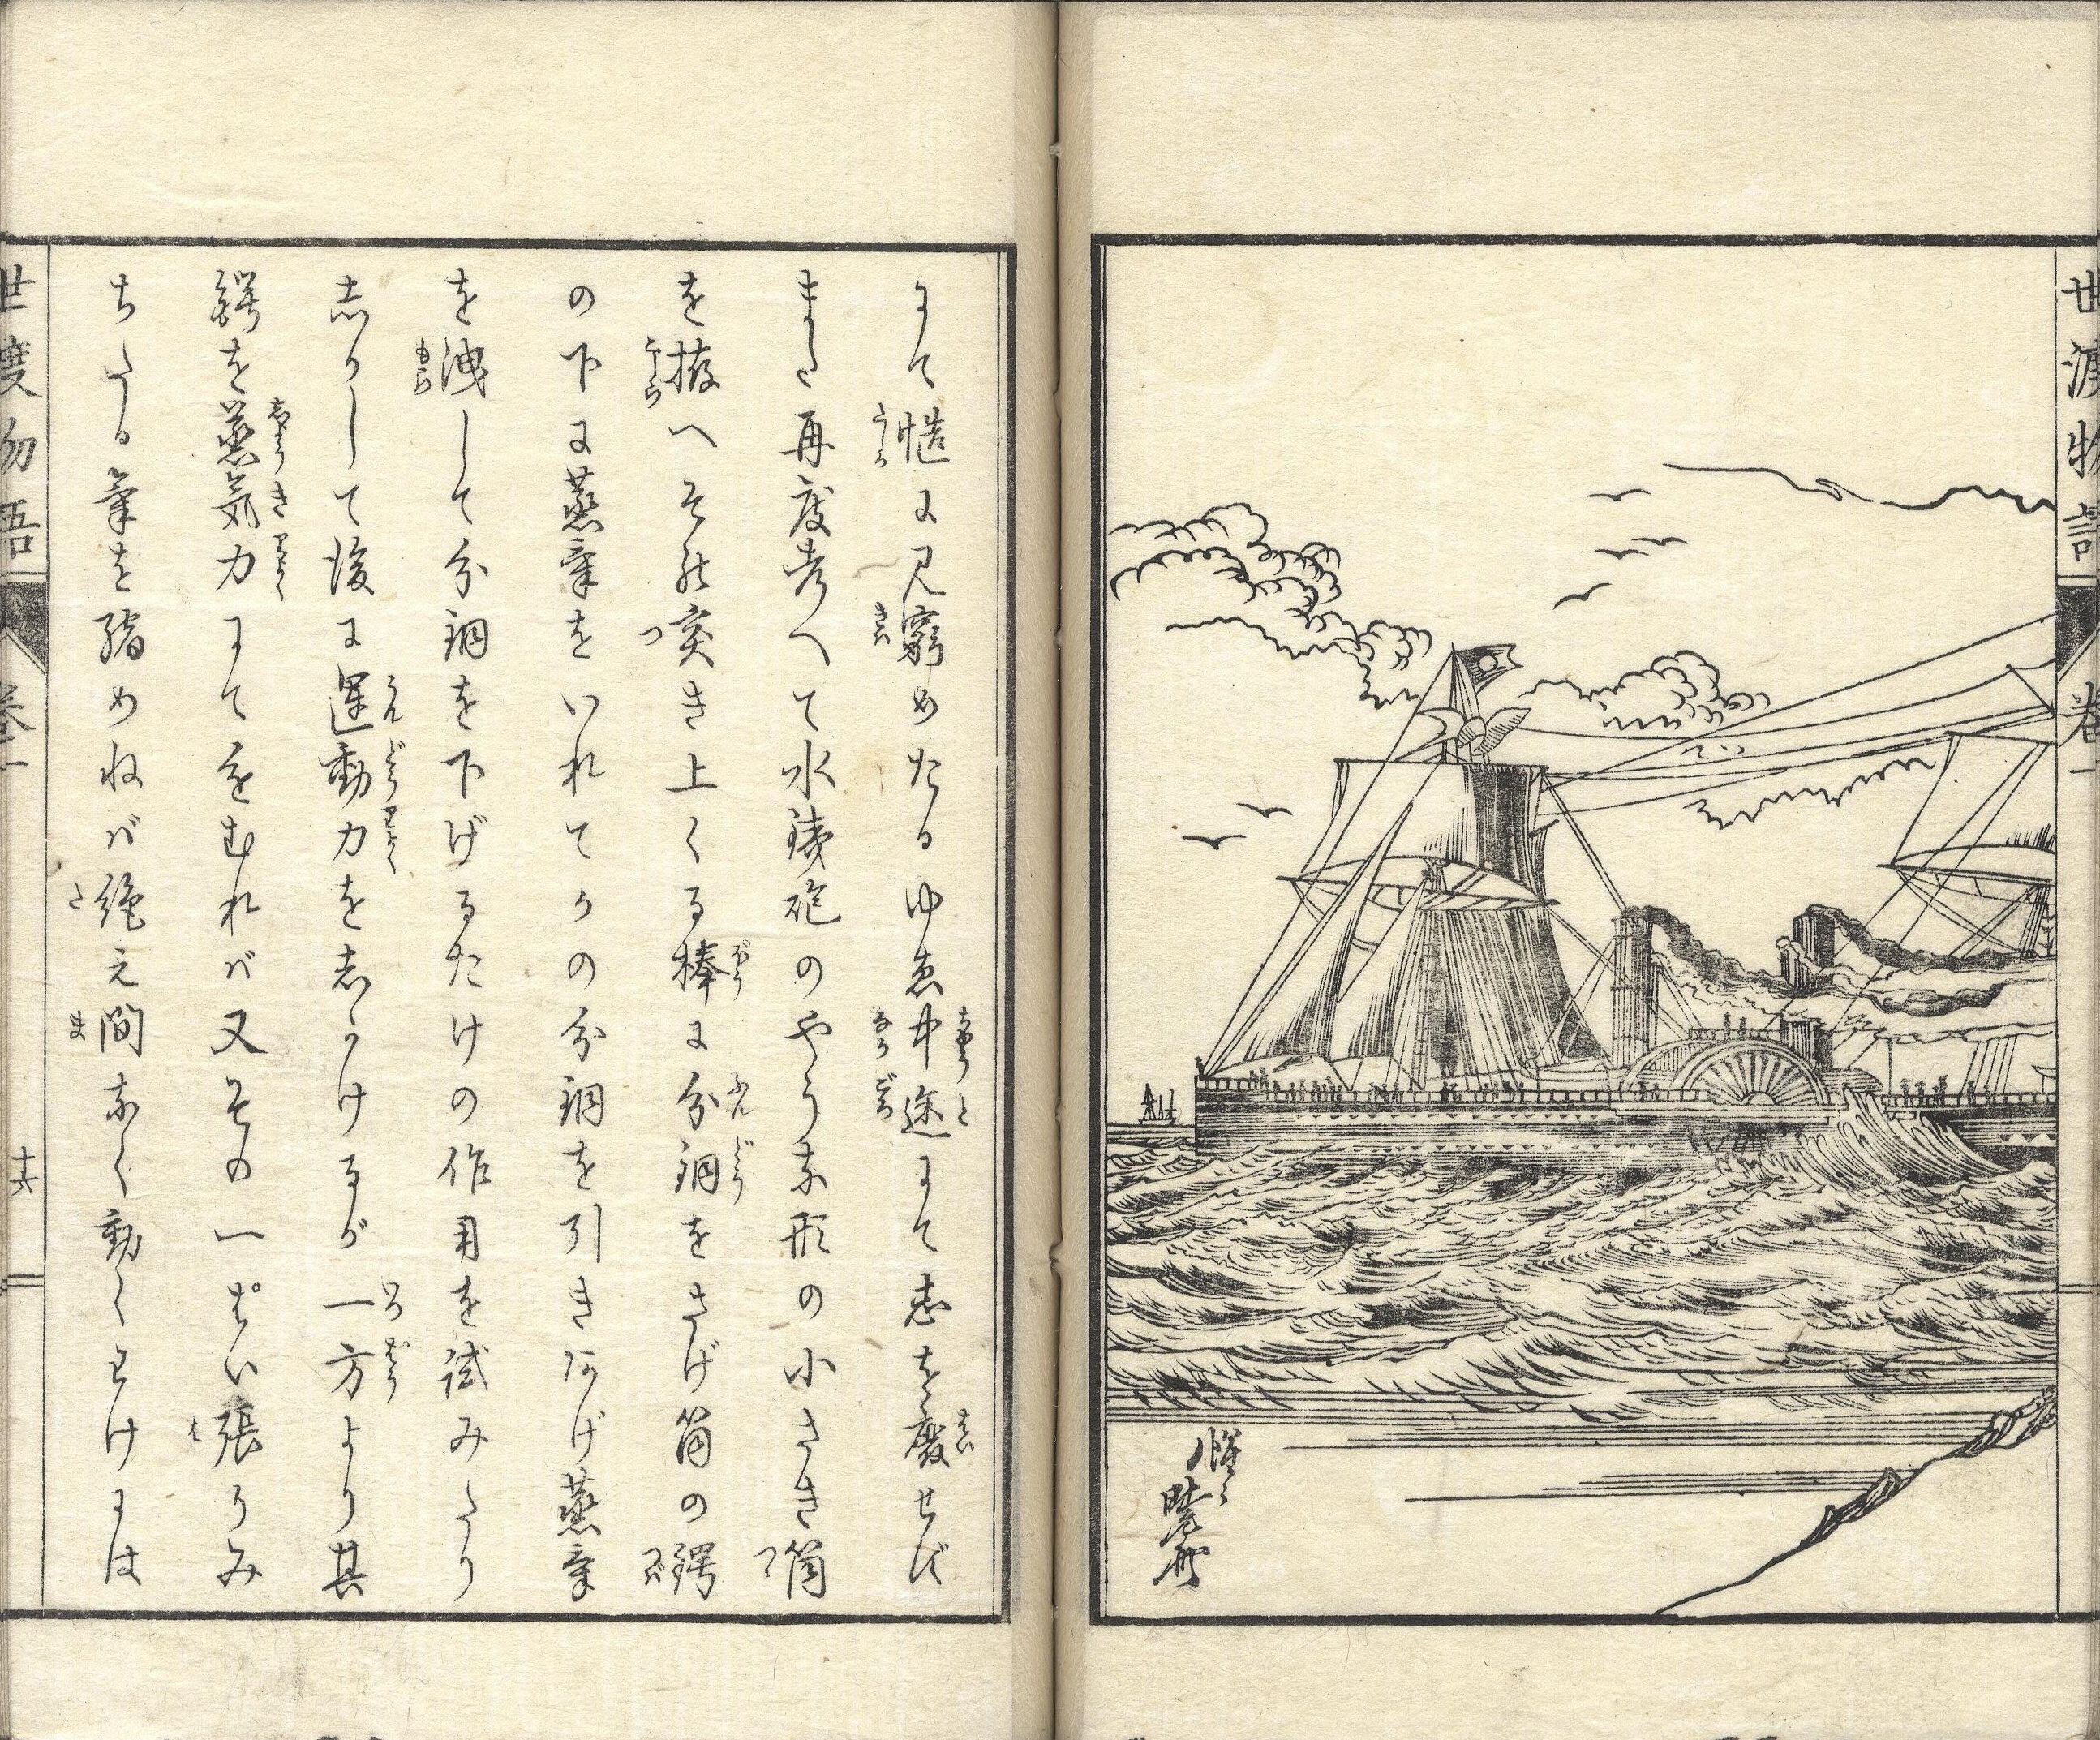 世渡物語
巻一
惺々
暁斎
にて慥に見窮めたるゆゑ中途にて志を廃せず
また再度考へて水鉄砲のやうな形の小さき筒
を拵へその突き上くる棒に分銅をさげ筒の鍔
の下に蒸気をいれてかの分銅を引きあげ蒸気
を洩して分銅を下げるたけの作用を試みたり
志かして後に運動力を志かけるが一方より其
鍔を蒸気力にてをむれバ又その一ぱい張りみ
ちたる気を縮めねバ絶え間なく動くわけには
世渡物語
巻一
十六